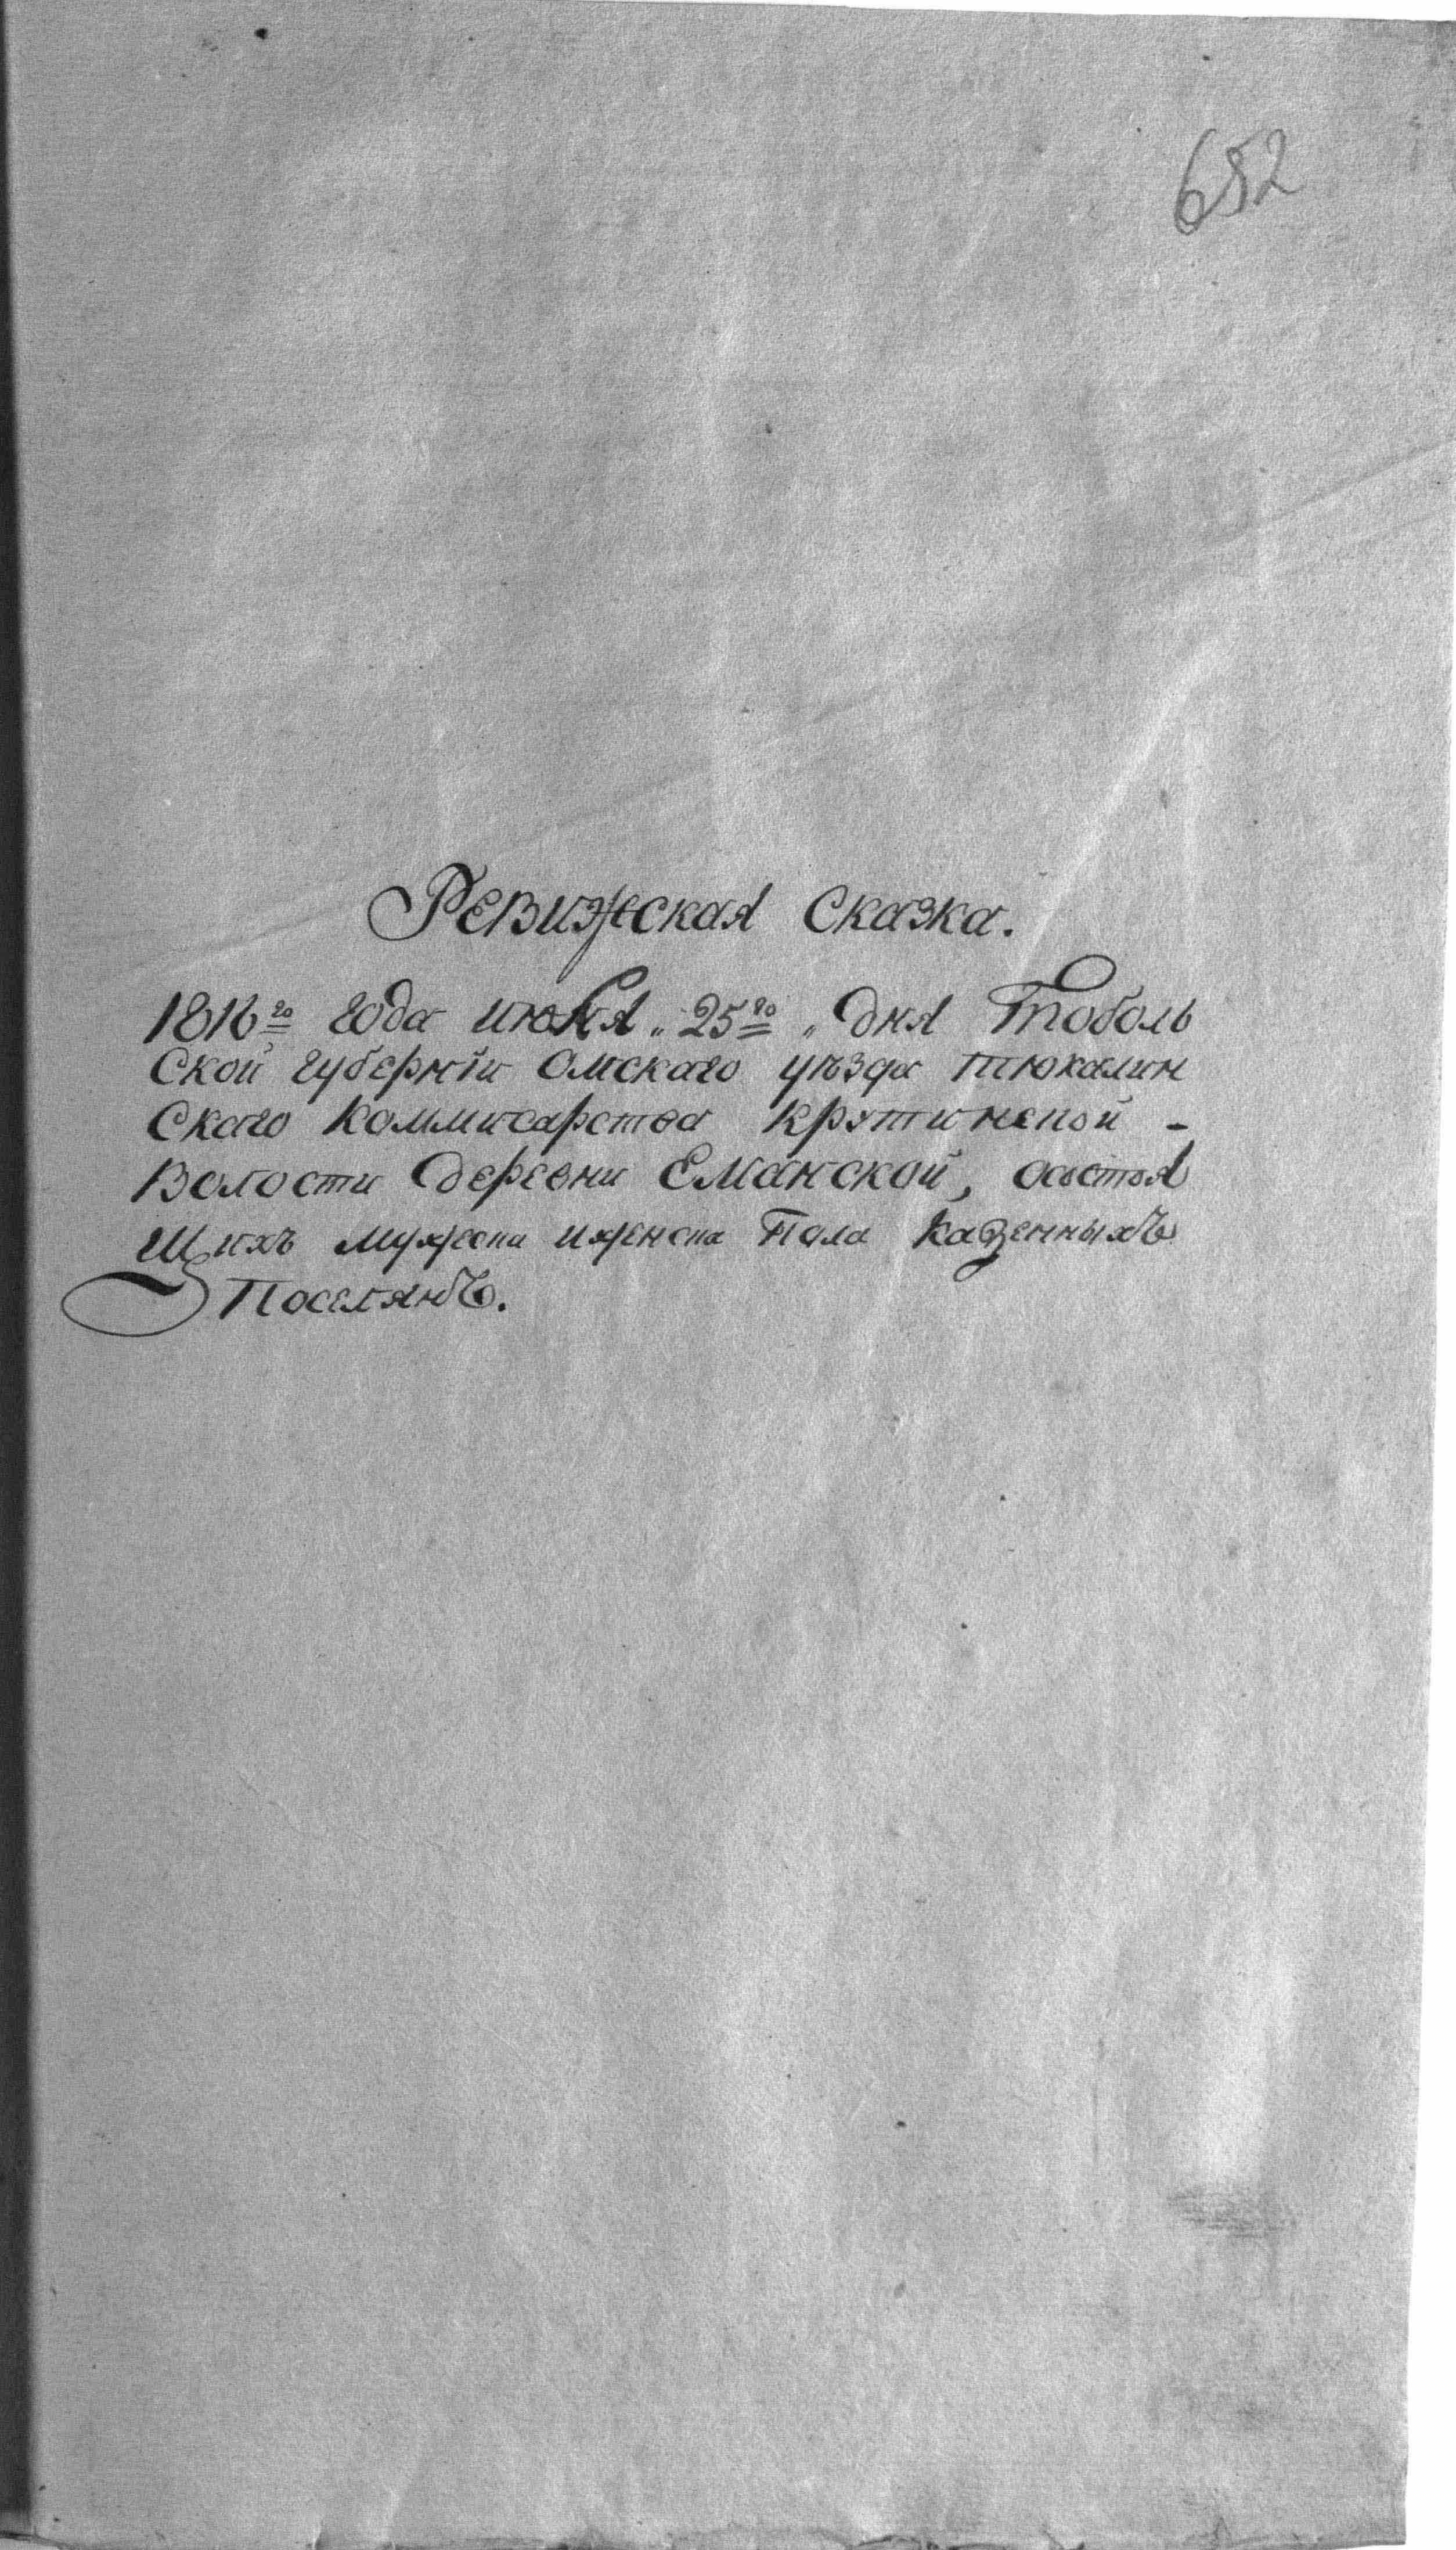 652
Ревижская Сказка.
1816го года июня „25го„ дня Тоболь
Ской губернїи Омскаго уѣзда тюкалин
Скаго Коммисарства Крутинской -
Волости Деревни Еманской, состоя
Щихъ мужеска иженска Пола Казенныхъ
Поселянъ.